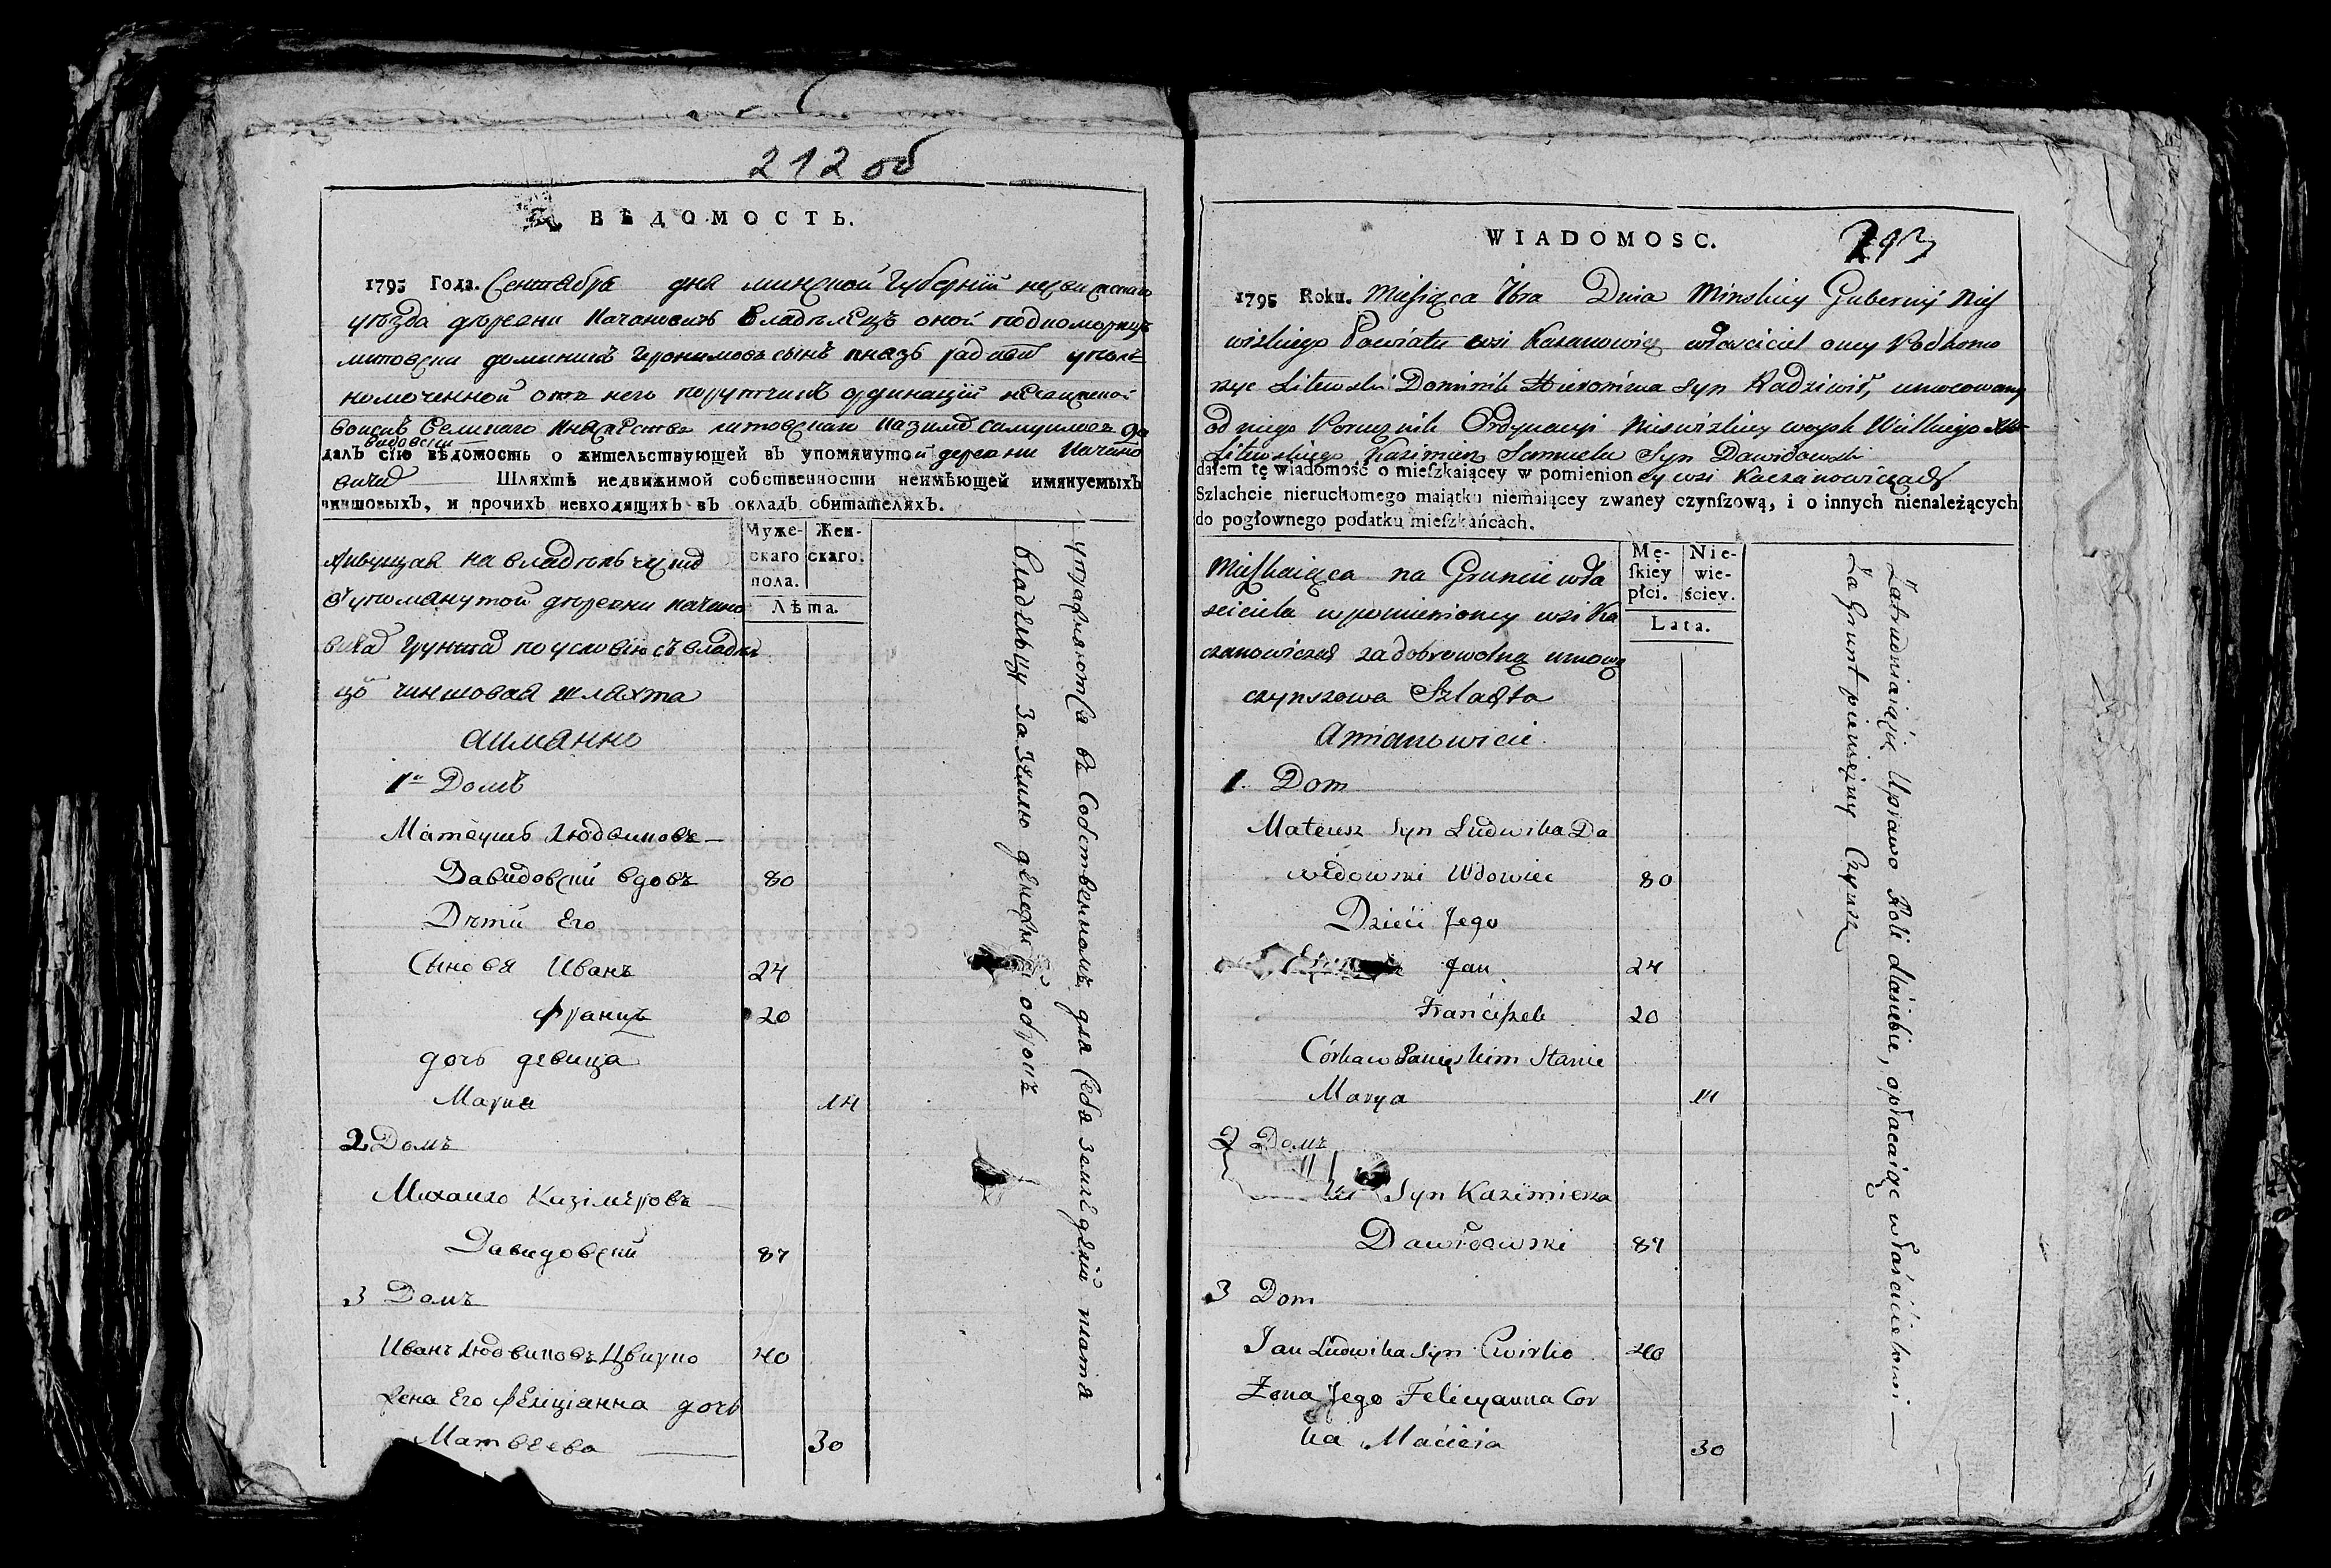 212 об
ВѢДОМОСТЬ.
1795 Года. Сентября дня минской Губернїи несвижскаго
уѣзда деревни Качановичъ Владѣлецъ оной подкоморжицъ
литовски доминикъ Иронимовъ сынъ князь радивил уполъ
номоченной отъ него порутчикъ ординации несвижской
воискъ Великаго Княжества литовскаго Казимѣ самуиловъ да
видовски
далъ сїю вѣдомость о жительствующей въ упомянутой деревни Качано
вичах Шляхтѣ недвижимой собственности неимѣющей имянуемыхъ
чиншовыхъ, и прочихъ невходящихъ въ окладъ обитателяхъ.
Муже-
скаго
пола.
Жен-
скаго.
Лѣта.
живущая на владѣльчую
в упомянутой деревни качано
вичах грунта по условию съ владѣл
цо чиншовая шляхта
а имянно
1й Домъ
Матеушъ Людвиковъ
Давидовски вдовъ 80
Дѣти Его
Сыновя Иванъ 24
Францъ 20
дочь девица
Марея 14
2 Домъ
Михаило Казімеровъ
Давидовски 87
3 Домъ
Иванъ Людвиковъ Цвирко 40
Жена Его Фелиціанна дочь
Матвеева 30
упражняютса въ Собственномъ для себя земледелїи плотя
владельцу за землю денежный оброкъ
WIADOMOSC.
213
1795 Roku. Miesiąca 7bra Dnia Minskiey Gubernij Nies
wizkiego Powiatu wsi Kaczanowicz właściciel oney Podkomo
rzyc Litewski Dominik Hieronima syn Radziwił, umocowany
od niego Porucznik Ordynacyi Nieswizkiey woysk Wielkiego Xa
Litewskiego Kazimierz Samuela Syn Dawidowski
dałem tę wiadomość o mieſzkaiącey w pomienioney wsi Kaczanowiczach
Szlachcie nieruchomego maiątku niemaiącey zwaney czynſzową, i o innych nienależących
do pogłownego podatku mieſzkańcach.
Mę-
ſkiey
płci.
Nie-
wie-
ściey.
Lata.
Mieszkaiąca na Gruncie wła
sciciela w pomienioney wsi Ka
czanowiczach za dobrowolną umową
czynszowa Szlachta
a mianowicie
1. Dom
Mateusz Syn Ludwika Da
widowski Wdowiec 80
Dzieci Jego
Jan 24
Franciszek 20
Córka w Panieskim Stanie
Marya 14
2 Домъ
Syn Kazimierza
Dawidowski 87
3 Dom
Jan Ludwika Syn Cwirko 40
Żona Jego Felicyanna Cor
ka Macieia 30
Zatrudniaiąc Uprawo Roli dla siebie, opłacaiąc właścicielowi
Za Grunt pieniężny Czynsz